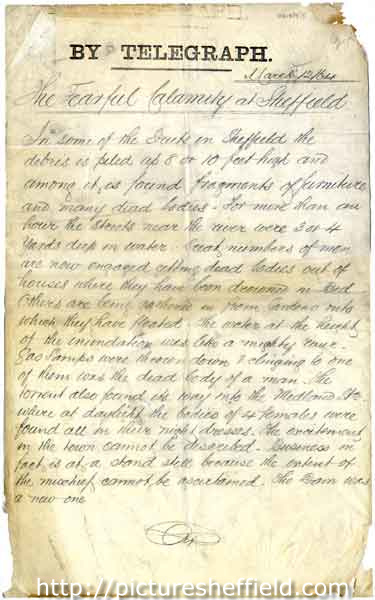 BY TELEGRAPH.
March 12/64
The Fearful Calamity at Sheffield
In some of the Streets in Sheffield the
debris is piled up 8 or 10 feet high and
among it, is found fragments of furniture
and many dead bodies. For more than an
hour the Streets near the river were 3 or 4
Yards deep in water. Great numbers of men
are now engaged getting dead bodies out of
houses where they have been drowned in bed
Others are being gathered in from gardens into
which they have floated. The water at the height
of the inundation was like a mighty river.
Gas Lamps were thrown down & clinging to one
of them was the dead body of a man. The
torrent also found its way into the Midland Stn
where at daylight the bodies of 4 females were
found all in their night dresses. The excitement
in the town cannot be described. Business in
fact is at a stand still because the extent of
the mischief cannot be ascertained. The Dam was
a new one
http://picturesheffield.com